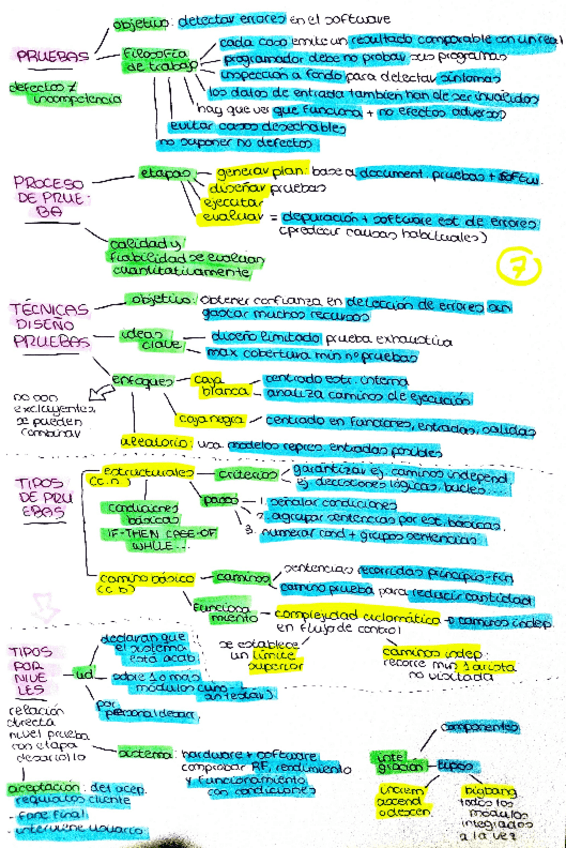 objetivo: detectar errores en el software
PRUEBAS
filosofía de trabajo
cada caso emite un resultado comparable con un real
programador debe no probar sus programas
inspección a fondo para detectar síntomas
los datos de entrada también han de ser inválidos
hay que ver que funciona + no efectos adversos
evitar casos desechables
no suponer no defectos
defectos ≠
incompetencia
PROCESO
DE PRUE-
BA
etapas
generar plan: base a document. pruebas + softw.
diseñar pruebas
ejecutar
evaluar = depuración + software est. de errores
(predecir causas habituales)
calidad y
fiabilidad se evalúan
cuantitativamente
7
TÉCNICAS
DISEÑO
PRUEBAS
objetivo: obtener confianza en detección de errores sin
gastar muchos recursos
ideas
clave
diseño limitado prueba exhaustiva
max cobertura min nº pruebas
enfoques
no son
excluyentes,
se pueden
combinar
caja
blanca
centrado estr. interna
analiza caminos de ejecución
caja negra
centrado en funciones, entradas, salidas
aleatorio: usa modelos repres. entradas posibles
TIPOS
DE PRU
EBAS
estructurales
criterios
garantizar ej. caminos independ
ej decisiones lógicas, bucles...
condiciones
básicas
IF-THEN CASE-OF
WHILE...
pasos
1. señalar condiciones
2. agrupar sentencias por est. básicas.
3. numerar cond + grupos sentencias
camino básico
(c b)
caminos
sentencias recorridas principio-fin
camino prueba para reducir cantidad
funciona
miento
complejidad ciclomática = caminos indep.
en flujo de control
se establece
un límite
superior
caminos indep:
recorre min 1 arista
no visitada
TIPOS
POR
NIVE
LES
ud
declaran que
el sistema
está acab.
sobre 1 o más
módulos
por
personal desarr.
relación
directa
nivel prueba
con etapa
desarrollo
sistema: hardware + software
comprobar RF, rendimiento
y funcionamiento
con condiciones
aceptación: del acep.
requisitos cliente
- fase final
- interviene usuario
inte
gración
componentes
tipos
increm
ascend
o descen.
bigbang
todos los
módulos
integrados
a la vez